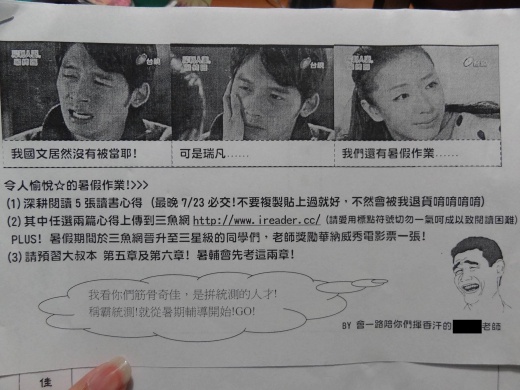 台視
台視
我國文居然沒有被當耶!
可是瑞凡……
我們還有暑假作業……
令人愉悅☆的暑假作業!>>>
(1) 深耕閱讀 5 張讀書心得 (最晚 7/23 必交!不要複製貼上過就好,不然會被我退貨唷唷唷唷)
(2) 其中任選兩篇心得上傳到三魚網 http://www.ireader.cc/ (請愛用標點符號切勿一氣呵成以致閱讀困難)
PLUS! 暑假期間於三魚網晉升至三星級的同學們,老師獎勵華納威秀電影票一張!
(3) 請預習大叔本 第五章及第六章! 暑輔會先考這兩章!
我看你們筋骨奇佳,是拼統測的人才!
稱霸統測!就從暑期輔導開始!GO!
BY 會一路陪你們揮香汗的 老師
佳